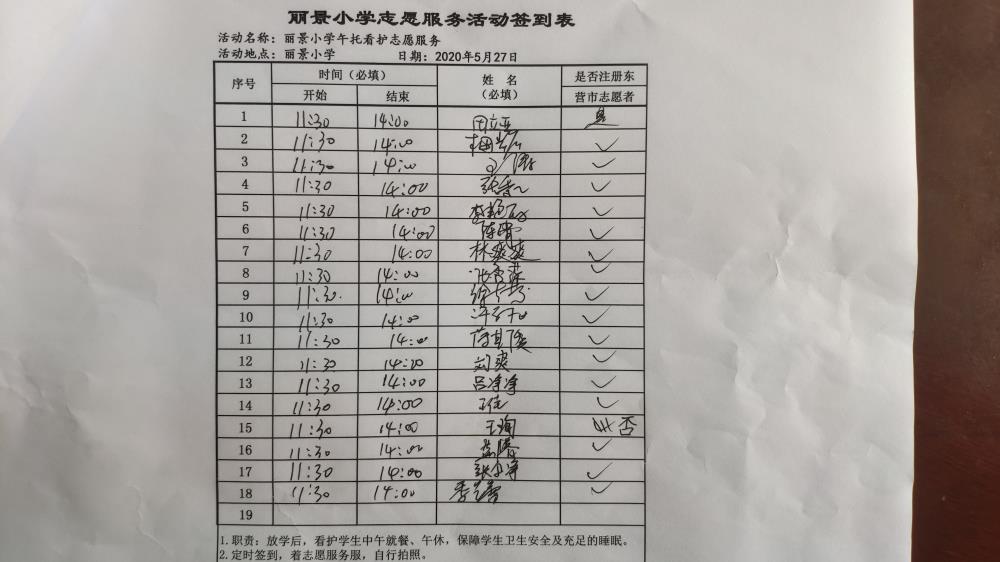 丽景小学志愿服务活动签到表
活动名称：丽景小学午托看护志愿服务
活动地点：丽景小学 日期：2020年5月27日
序号 时间（必填） 姓 名 （必填） 是否注册东营市志愿者
开始 结束
1 11:30 14:00 是
2 11:30 14:00 ✓
3 11:30 14:00 ✓
4 11:30 14:00 ✓
5 11:30 14:00 ✓
6 11:30 14:00 ✓
7 11:30 14:00 林爽爽 ✓
8 11:30 14:00 ✓
9 11:30 14:00 ✓
10 11:30 14:00 ✓
11 11:30 14:00 ✓
12 11:30 14:00 刘爽 ✓
13 11:30 14:00 吕净净 ✓
14 11:30 14:00 王佳 ✓
15 11:30 14:00 王洵 否
16 11:30 14:00 ✓
17 11:30 14:00 ✓
18 11:30 14:00 ✓
19
1.职责：放学后，看护学生中午就餐、午休，保障学生卫生安全及充足的睡眠。
2.定时签到，着志愿服务服，自行拍照。